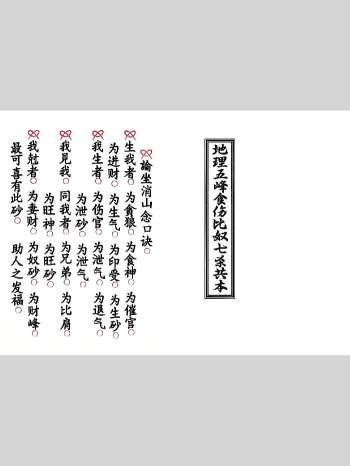 地理五峰食伤比奴七杀共本
論坐消山念口诀○
生我者○为貪狼○为食神○为催官○
为进财○为生气○为印受○为生砂○
我生者○为伤官○为泄气○为退气○
为泄砂○为泄气○
我見我○同我者○为兄弟○为比肩○
为旺神○为旺砂○
我尅者○为妻财○为奴砂○为财峰○
最可喜有此砂○助人之发福○